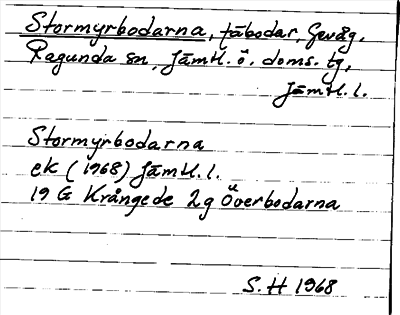 Stormyrbodarna, fäbodar, Gevåg,
Ragunda sn, Jämtl. ö. doms. tg,
Jämtl. l.
Stormyrbodarna
ek (1968) Jämtl. l.
19 G Krångede 2g Överbodarna
S. H 1968